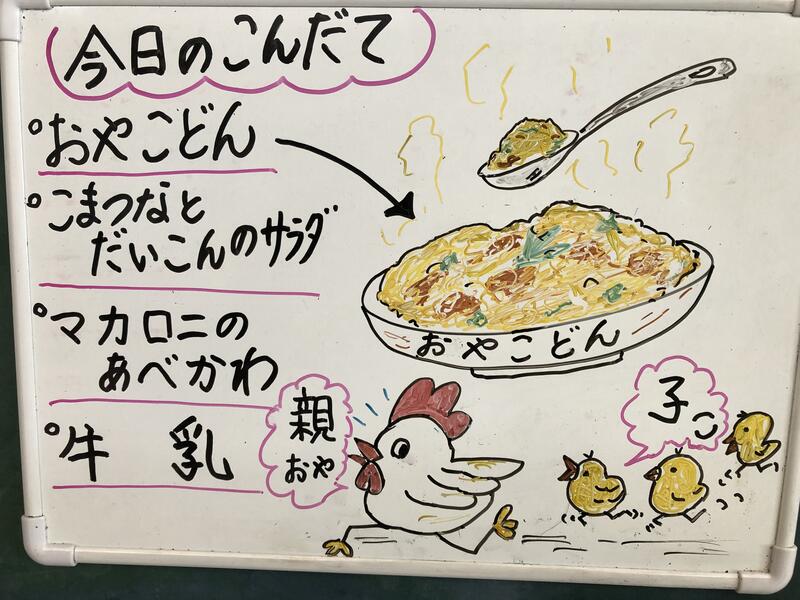 今日のこんだて
おやこどん
こまつなと
だいこんのサラダ
マカロニの
あべかわ
牛 乳
おやこどん
親
おや
子こ